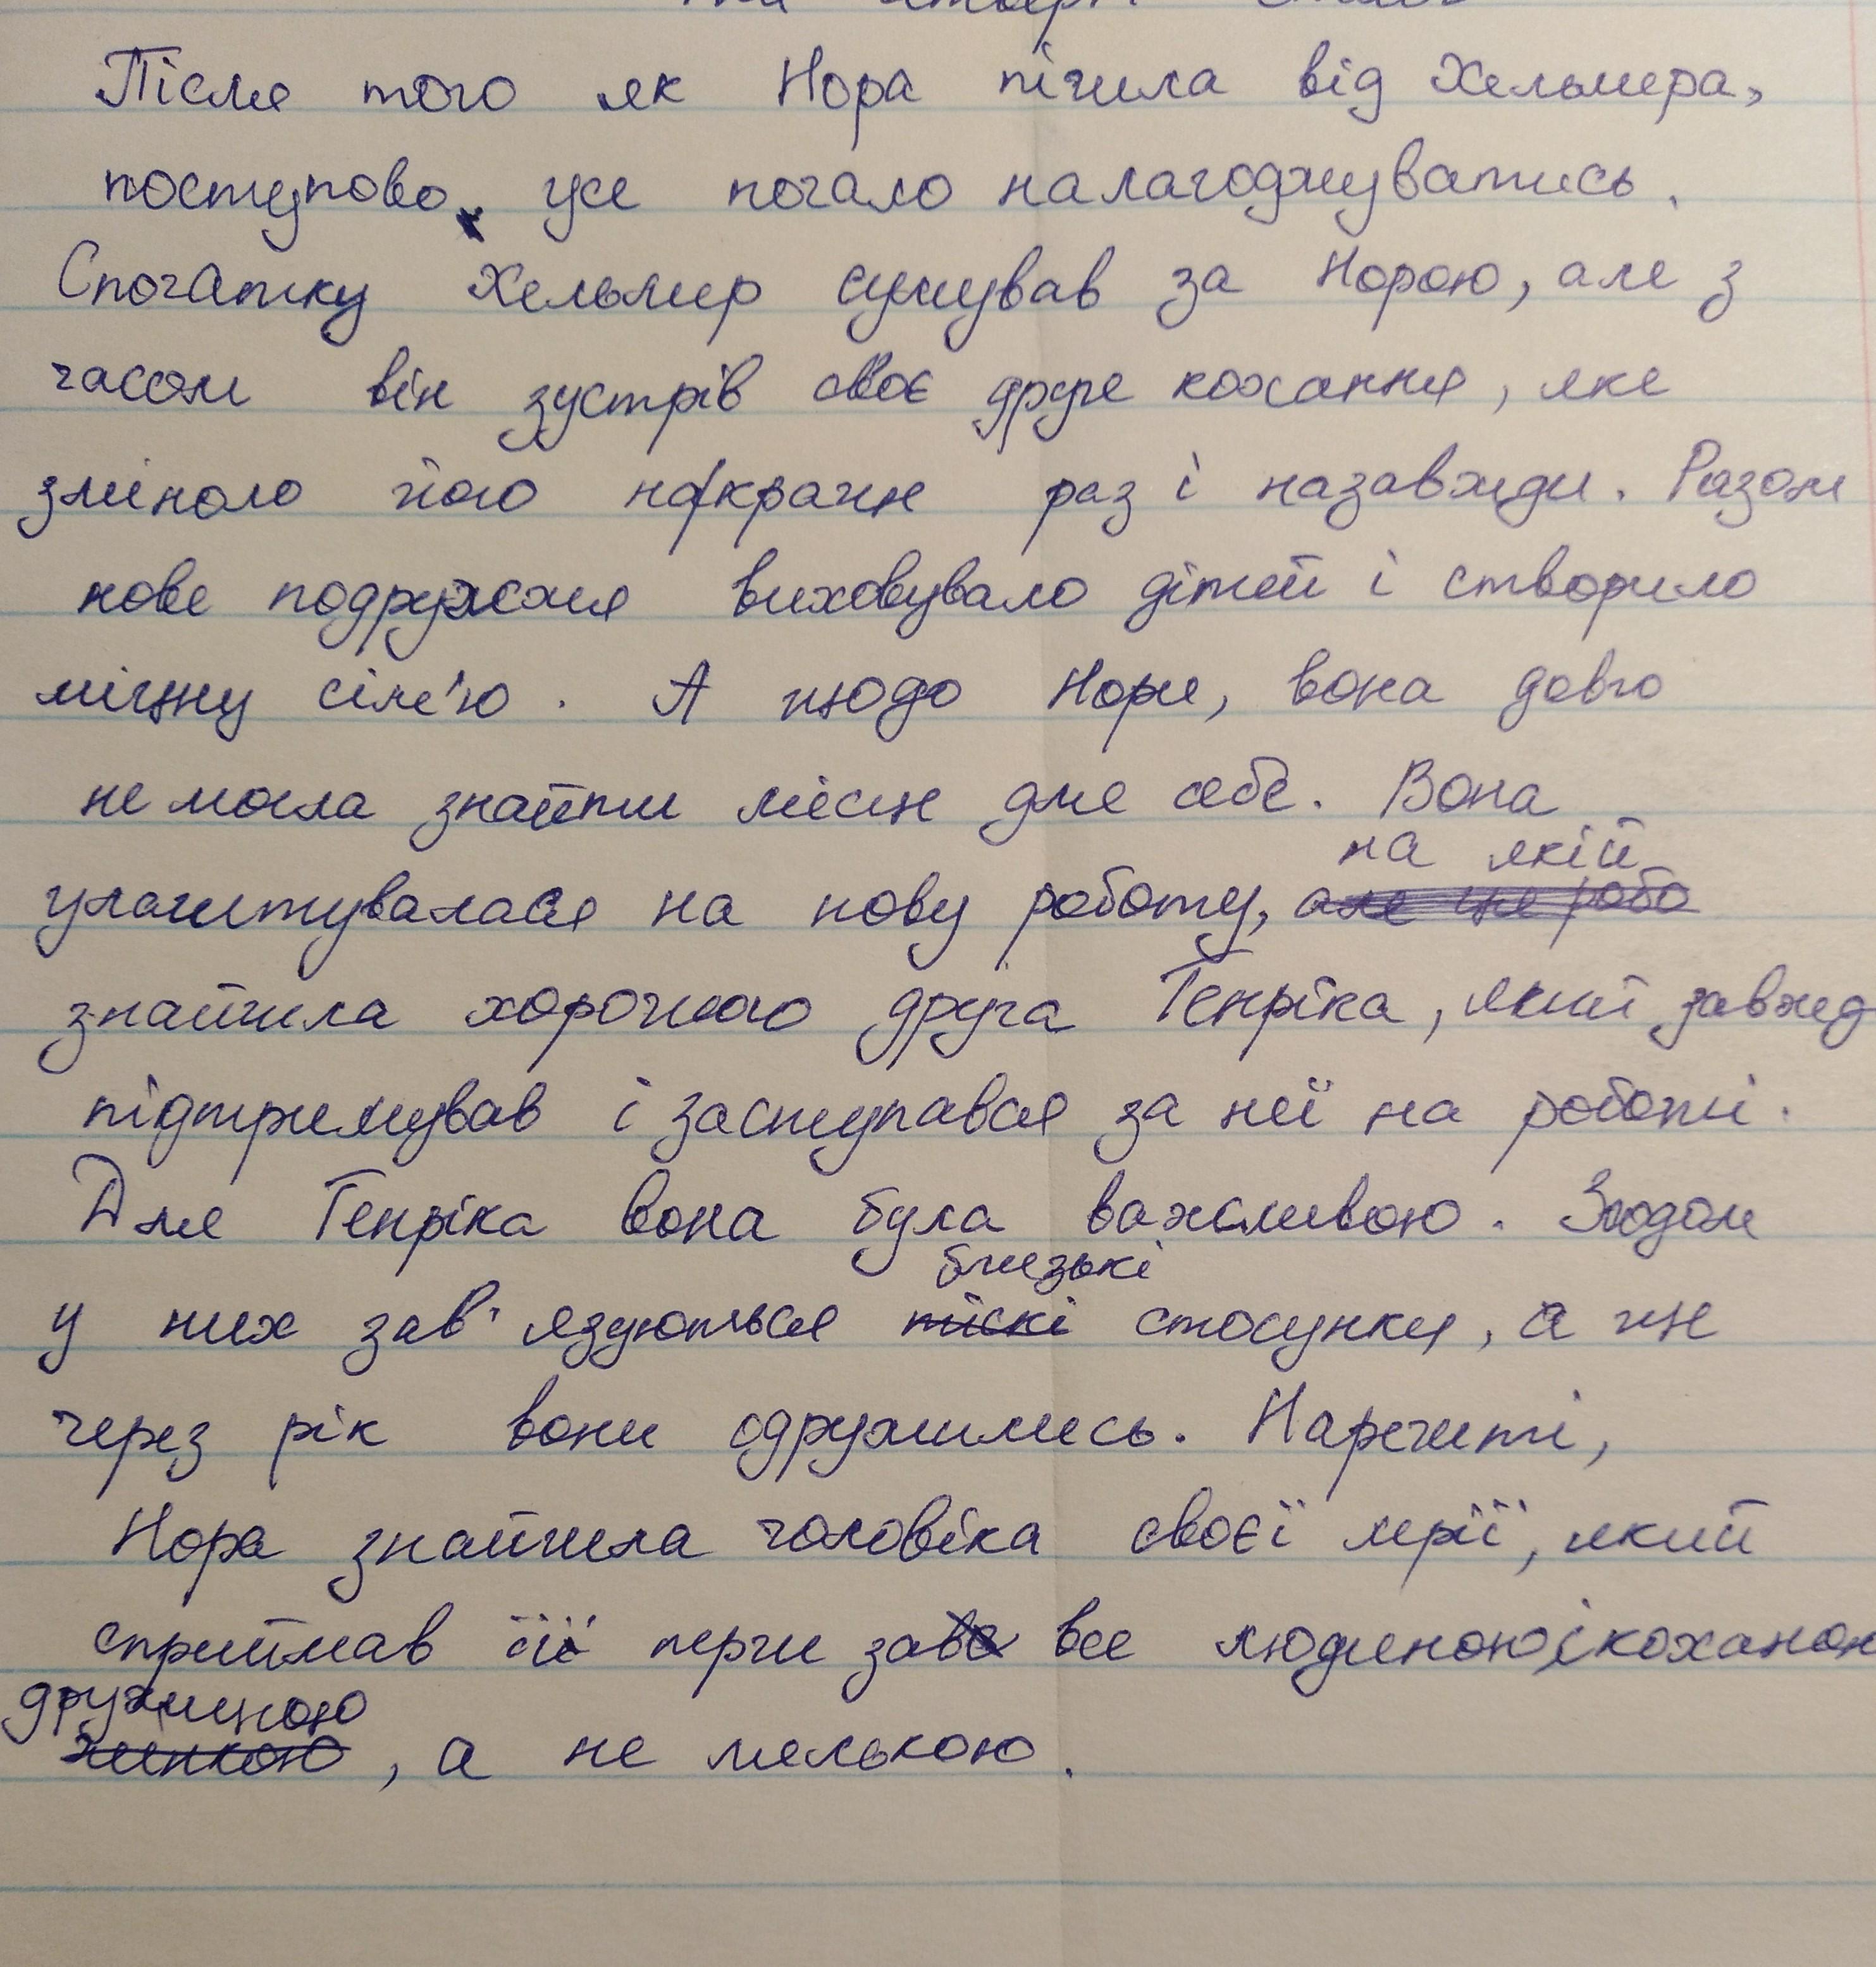 Після того як Нора пішла від Хельмера,
поступово усе почало налагоджуватись.
Спочатку Хельмер сумував за Норою, але з
часом він зустрів своє друге кохання, яке
змінило його на краще раз і назавжди. Разом
нове подружжя виховувало дітей і створило
міцну сім'ю. А щодо Нори, вона довго
не могла знайти місце для себе. Вона
на якій
улаштувалася на нову роботу, але це робо
знайшла хорошого друга Генріка, який завжд
підтримував і заступався за неї на роботі.
Для Генріка вона була важливою. Згодом
близькі
у них зав'язуються тіскі стосунки, а ще
через рік вони одружились. Нарешті,
Нора знайшла чоловіка своєї мрії, який
сприймав її перш за все людиною і коханою
дружиною
жінкою, а не лялькою.